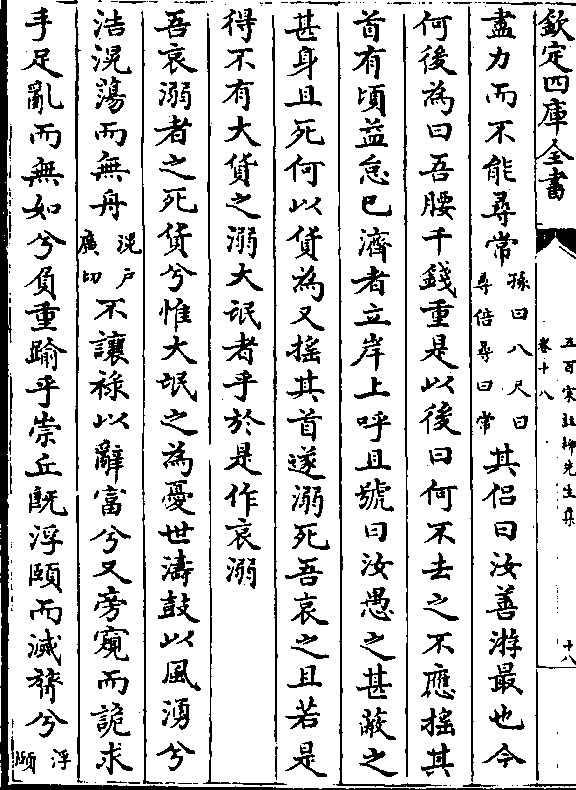 欽定四庫全書
五百家註柳先生集
卷十八
十八
盡力而不能尋常孫曰八尺曰尋倍尋曰常其侣曰汝善游最也今
何後為曰吾腰千錢重是以後曰何不去之不應摇其
首有頃益怠已濟者立岸上呼且號曰汝愚之甚蔽之
甚身且死何以貨為又摇其首遂溺死吾哀之且若是
得不有大貨之溺大氓者乎於是作哀溺
吾哀溺者之死貨兮惟大氓之為憂世濤鼓以風湧兮
浩滉蕩而無舟滉户廣切不讓禄以辭富兮又旁窺而詭求
手足亂而無如兮負重踰乎崇丘既浮頤而滅膂兮浮頤